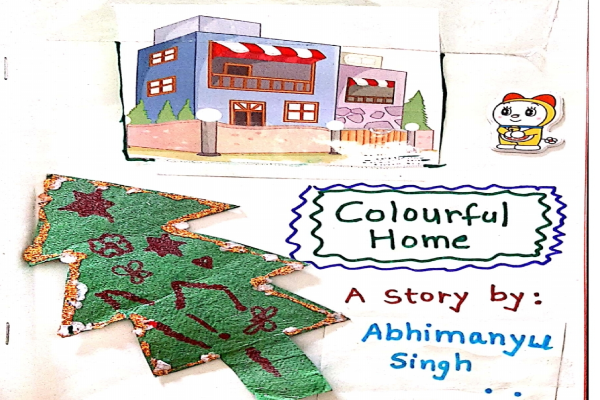 Colourful
Home
A Story by:
Abhimanyu
Singh